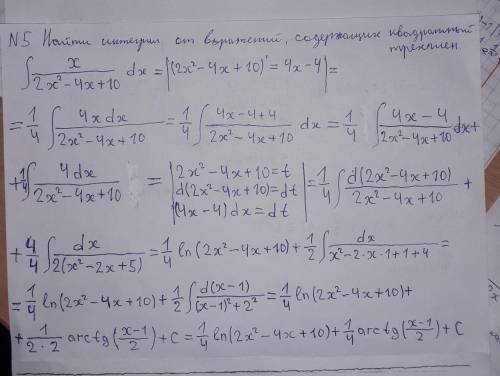 N5 Найти интеграл от выражений, содержащих квадратный
трехчлен.
∫ x/(2x²-4x+10) dx = |(2x²-4x+10)' = 4x-4| =
= 1/4 ∫ 4x dx/(2x²-4x+10) = 1/4 ∫ (4x-4+4)/(2x²-4x+10) dx = 1/4 ∫ (4x-4)/(2x²-4x+10) dx +
+ 1/4 ∫ 4dx/(2x²-4x+10) = |2x²-4x+10=t
d(2x²-4x+10)=dt
(4x-4)dx=dt| = 1/4 ∫ d(2x²-4x+10)/(2x²-4x+10) +
+ 4/4 ∫ dx/(2(x²-2x+5)) = 1/4 ln(2x²-4x+10) + 1/2 ∫ dx/(x²-2·x·1+1+4) =
= 1/4 ln(2x²-4x+10) + 1/2 ∫ d(x-1)/((x-1)²+2²) = 1/4 ln(2x²-4x+10) +
+ 1/(2·2) arctg((x-1)/2) + C = 1/4 ln(2x²-4x+10) + 1/4 arctg((x-1)/2) + C